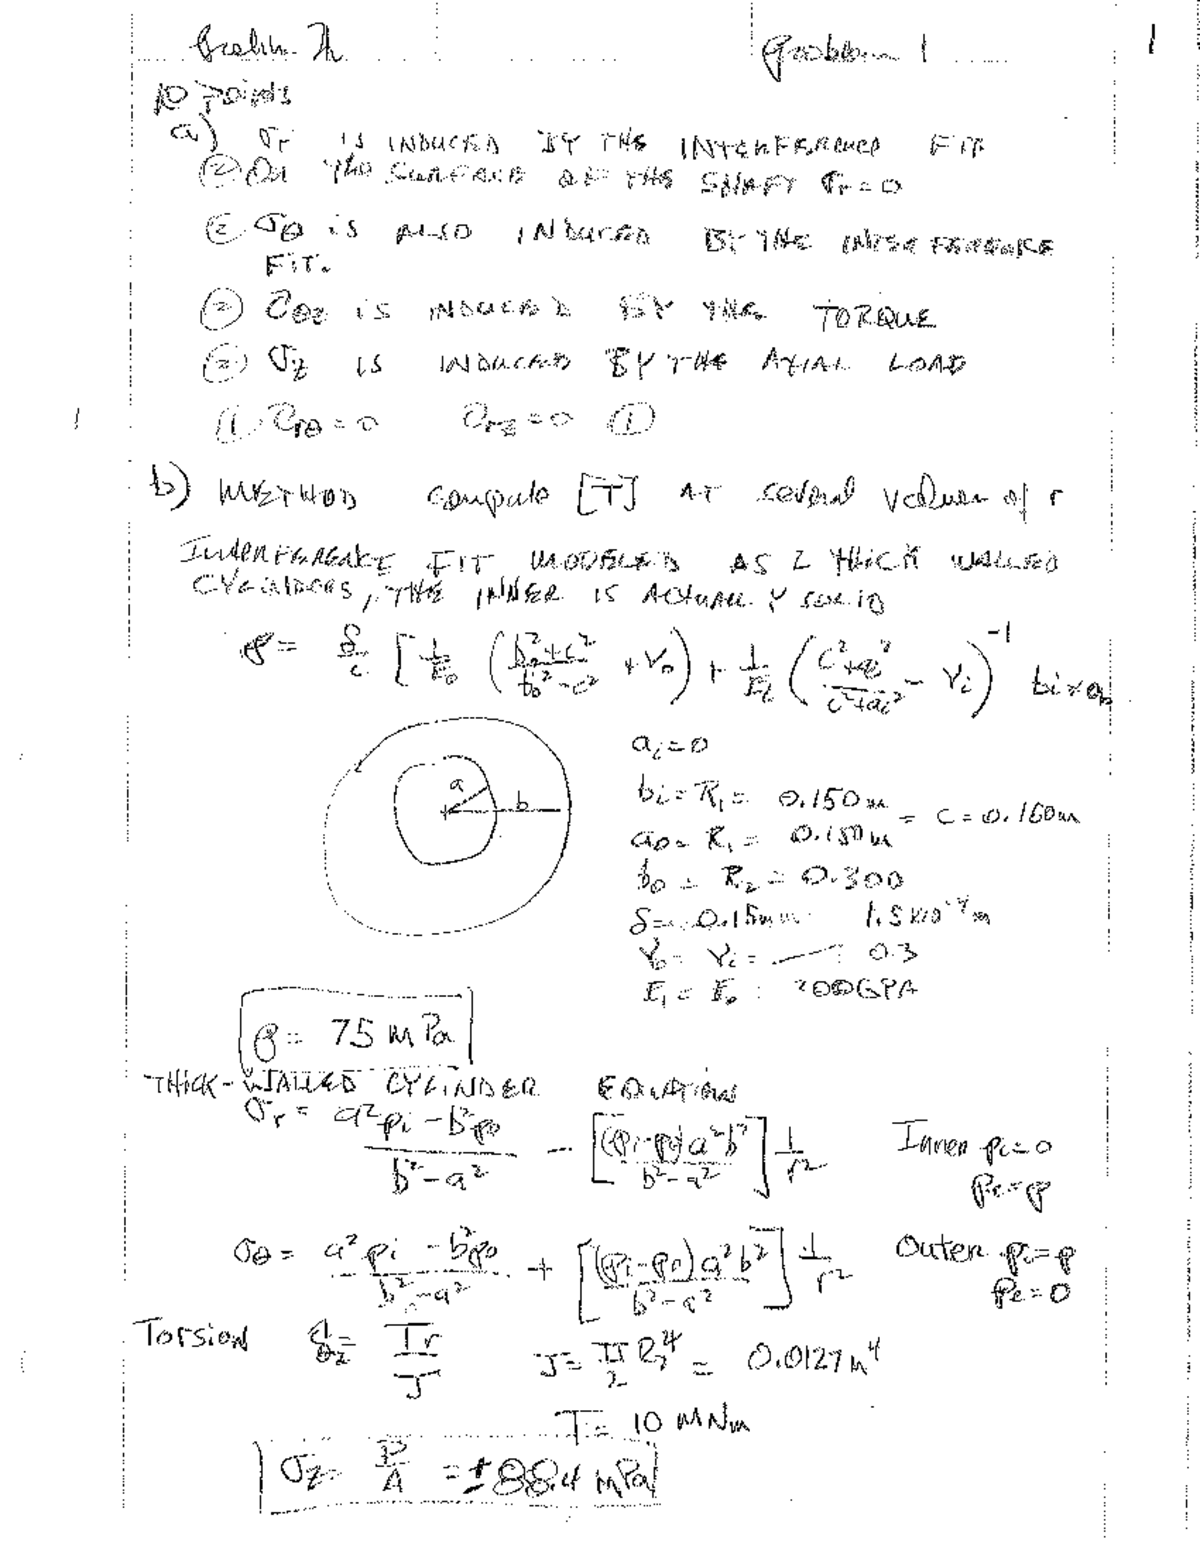 Problem 1
1
10 Points
a) σr IS INDUCED BY THE INTERFERENCE FIT
② ON THE SURFACE OF THE SHAFT σr = 0
② σθ is ALSO INDUCED BY THE INTERFERENCE
FIT.
② τθz is INDUCED BY THE TORQUE
② σz IS INDUCED BY THE AXIAL LOAD
① τrθ = 0 τrz = 0 ①
b) METHOD compute [T] AT several values of r
INTERFERENCE FIT MODELED AS 2 THICK WALLED
CYLINDERS, THE INNER IS ACTUALLY SOLID
p = δ/c [1/E₀ (b₀²+c²/b₀²-c² + ν₀) + 1/Ei (c²+ai²/c²+ai² - νi)⁻¹
a b
ai = 0
bi = R₁ = 0.150 m
a₀ = R₁ = 0.150 m = c = 0.150m
b₀ = R₂ = 0.300
δ = 0.15mm 1.5x10⁻⁴ m
ν₀ = νi = 0.3
E₁ = E₀ : 200 GPA
p = 75 MPa
THICK-WALLED CYLINDER EQUATIONS
σr = a²pi - b²p₀ / b²-a² - [(pi-p₀)a²b² / b²-a²] 1/r² Inner pi = 0
pe = p
σθ = a²pi - b²p₀ / b²-a² + [(pi-pe)a²b² / b²-a²] 1/r² Outer pi = p
pe = 0
Torsion = Tr/J J = π/2 R₂⁴ = 0.0127 m⁴
T = 10 MNm
σz = P/A = ± 88.4 MPa